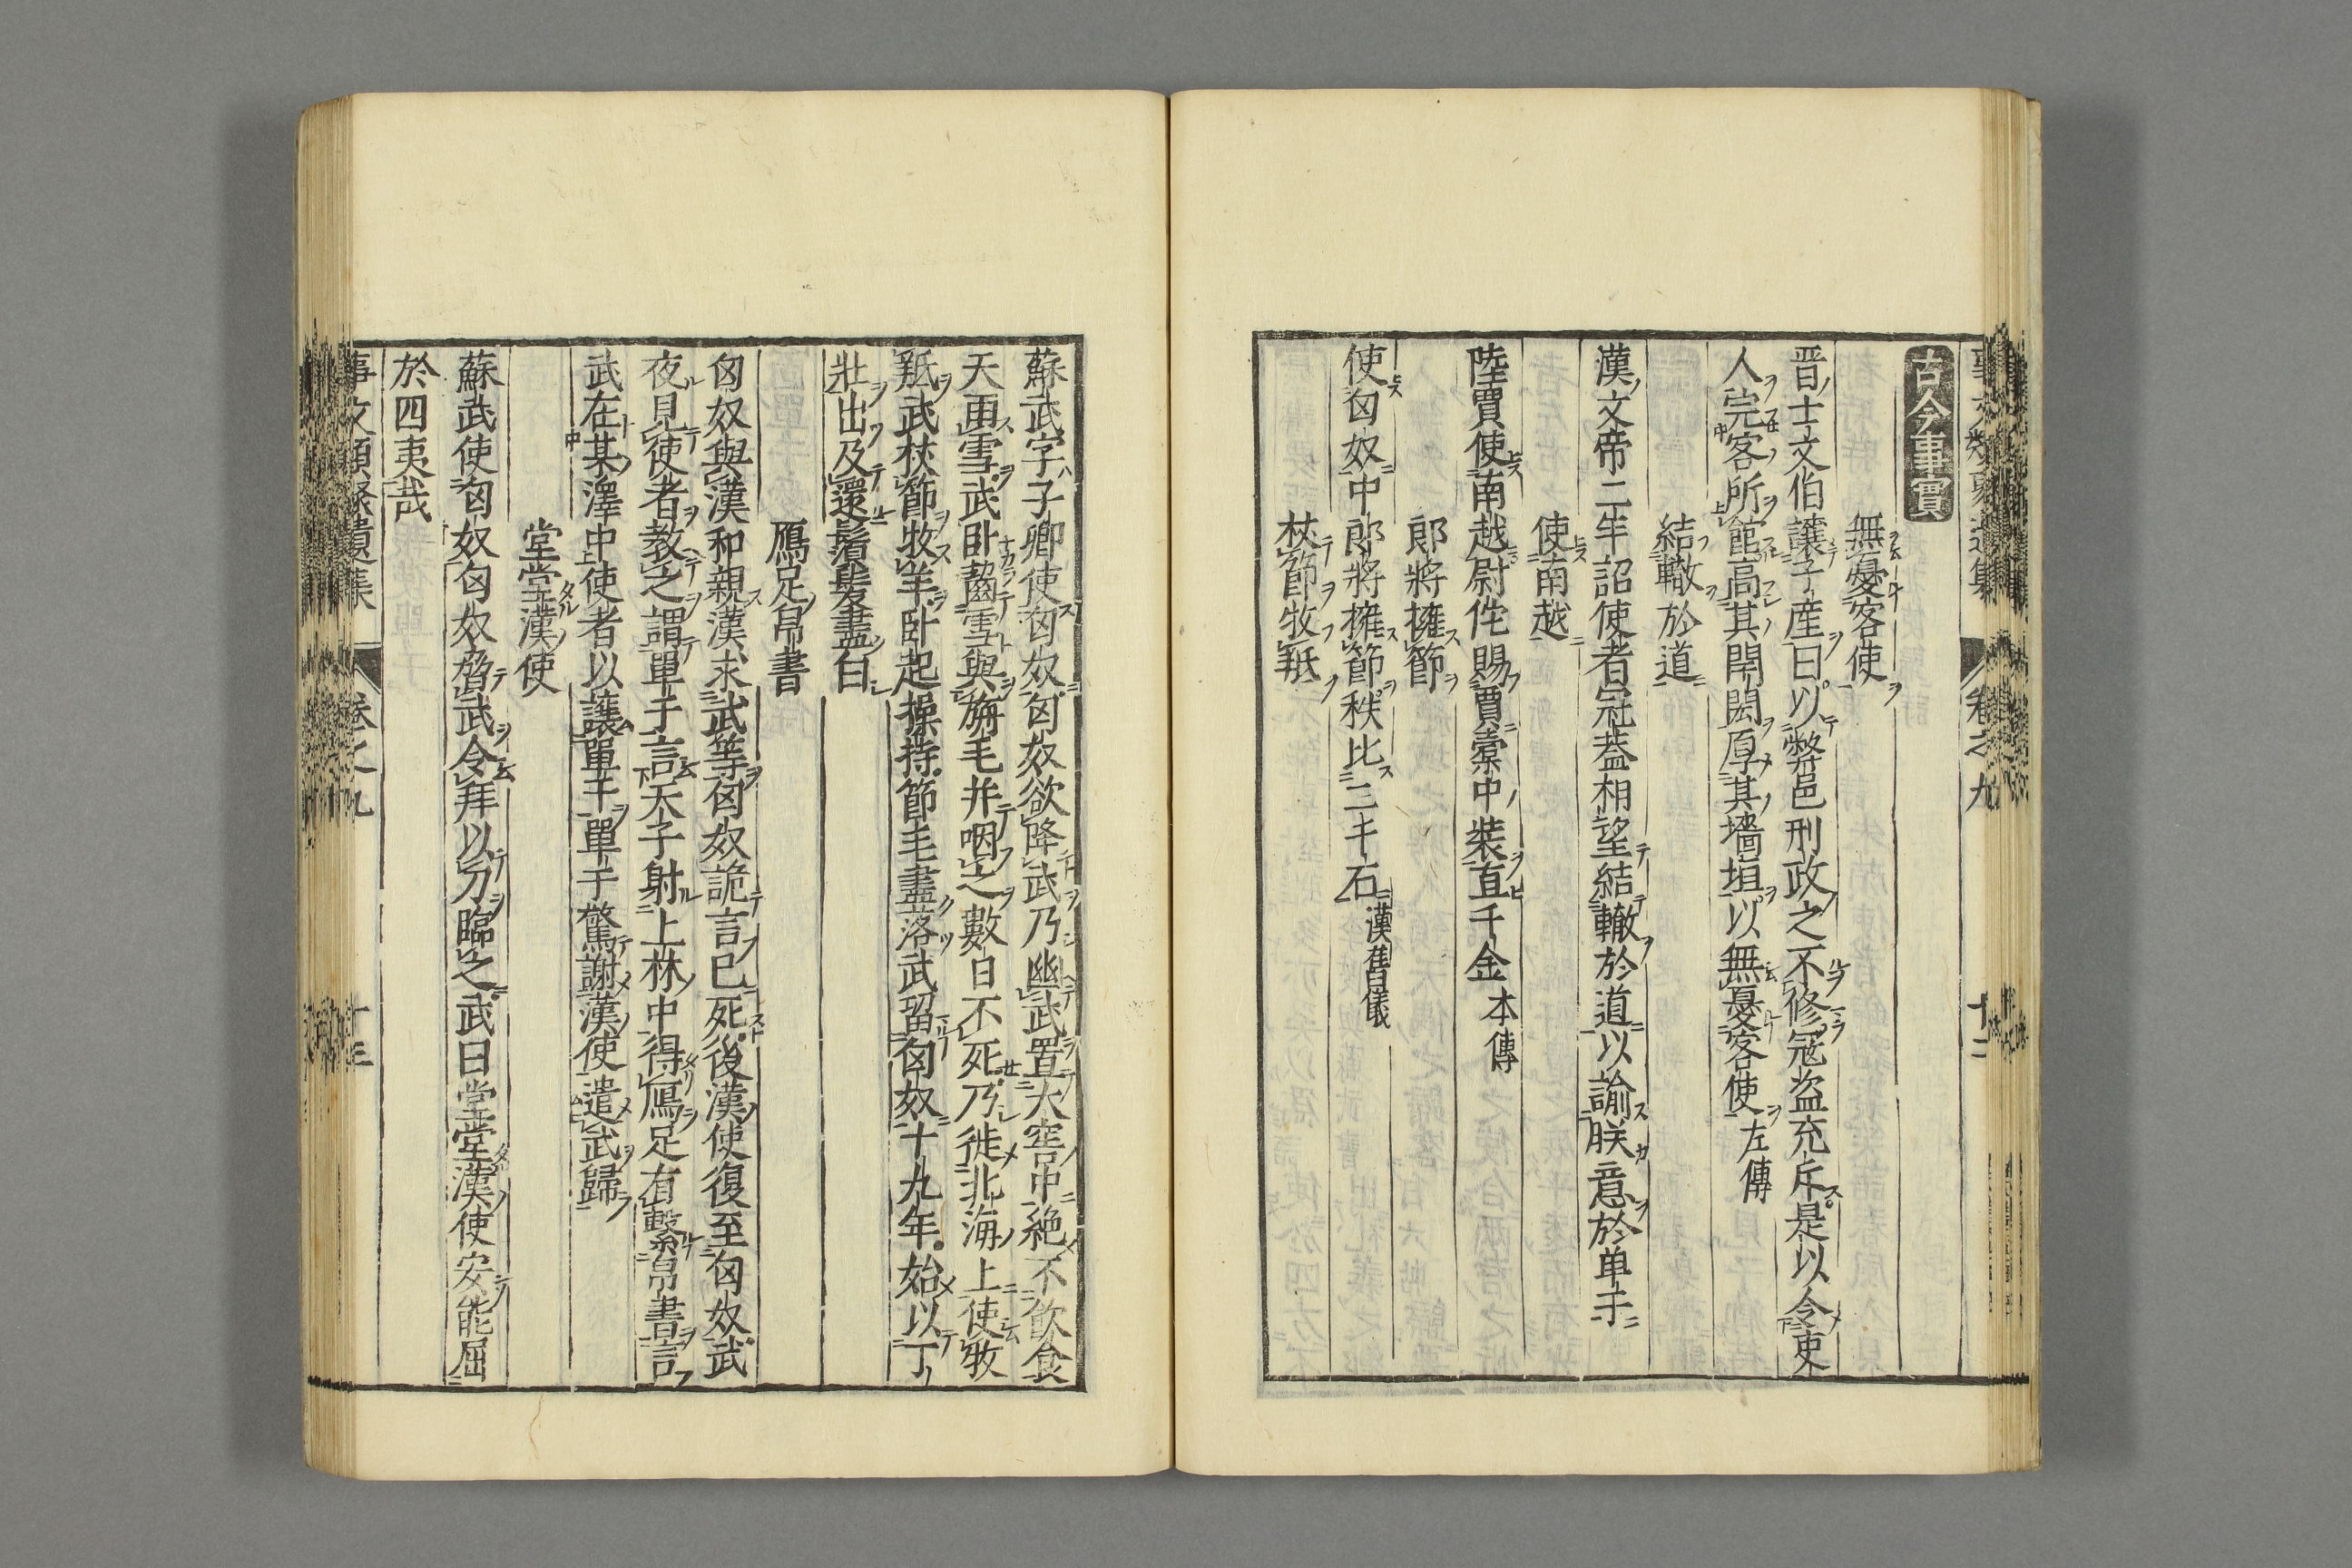 古今事實
無憂客使
晋士文伯讓子産曰以弊邑刑政之不修冦盗充斥是以令吏
人完客所館高其閈閎厚其墻垣以無憂客使左傳
結轍於道
漢文帝二年詔使者冠蓋相望結轍於道以諭朕意於单于
使南越
陸賈使南越尉佗賜賈橐中裝直千金本傳
郎將擁節
使匈奴中郎將擁節秩比二千石漢舊儀
杖節牧羝
蘇武字子卿使匈奴匈奴欲降武乃幽武置大窖中絶不飲食
天雨雪武卧齧雪與旃毛并咽之數日不死乃徙北海上使牧
羝武杖節牧羊卧起操持節毛盡落武留匈奴十九年始以丁
壯出及還鬚髮盡白
鴈足帛書
匈奴與漢和親漢求武等匈奴詭言已死後漢使復至匈奴武
夜見使者教之謂單于言天子射上林中得鴈足有繫帛書言
武在某澤中使者以讓單于單于驚謝漢使遣武歸
堂堂漢使
蘇武使匈奴匈奴脅武令拜以刃臨之武曰堂堂漢使安能屈
於四夷哉
事文類聚遺集 卷之九 十三